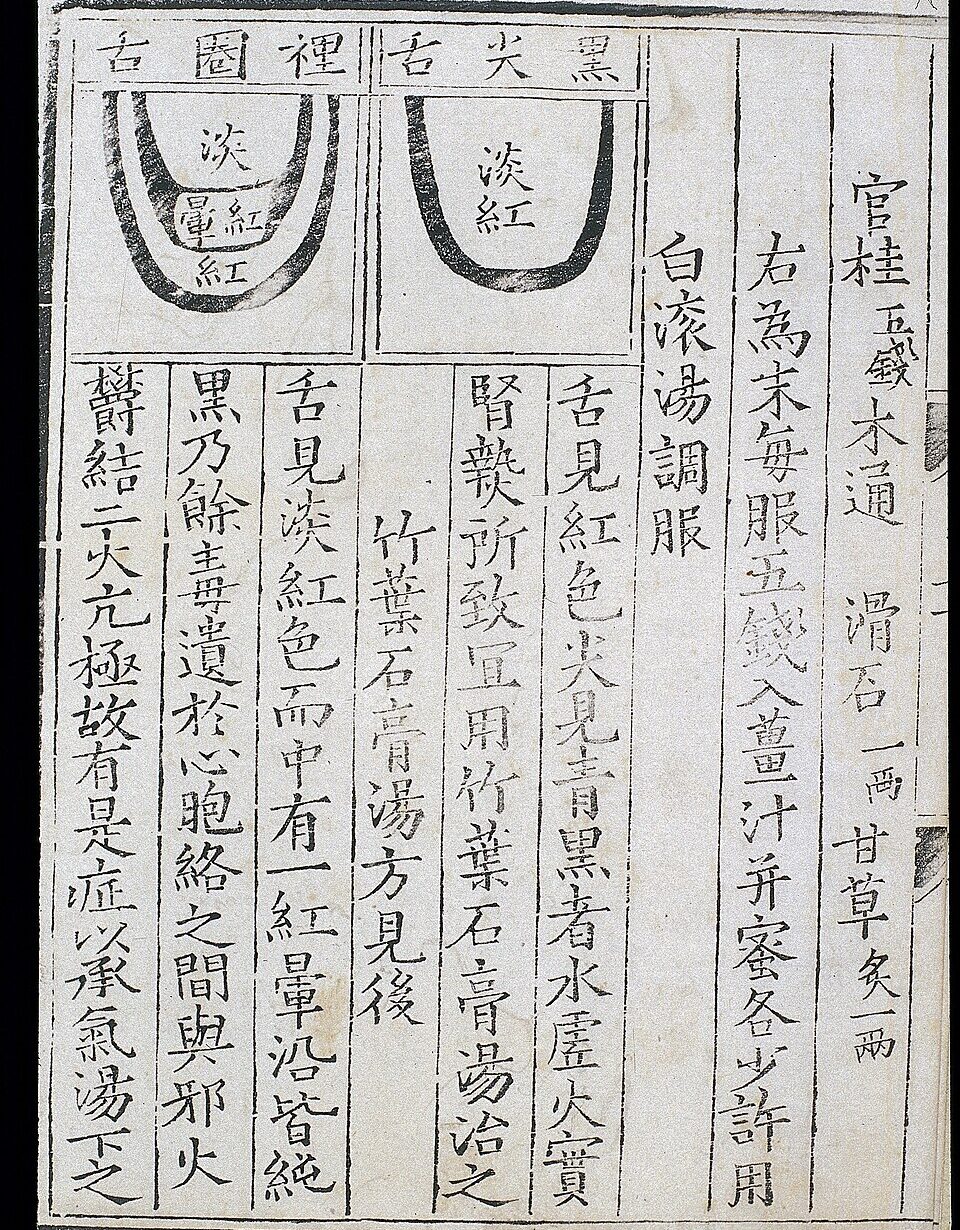 官桂五錢 木通 滑石一兩 甘草炙一兩
右為末每服五錢入薑汁并蜜各少許用
白滚湯調服
黑尖舌
淡紅
舌見紅色尖見青黑者水虛火實
腎𤍠所致宜用竹葉石膏湯治之
竹葉石膏湯方見後
裡圈舌
淡
紅暈
紅
舌見淡紅色而中有一紅暈沿皆純
黑乃餘毒遺於心胞絡之間與邪火
欝結二火亢極故有是症以承氣湯下之